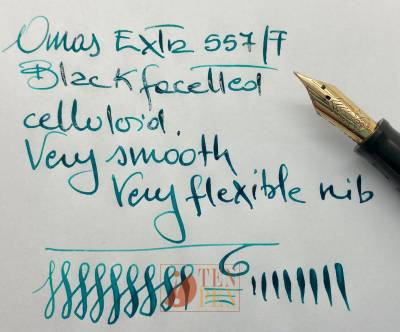 Omas Extra 557/F
Black facetted
celluloid.
Very smooth
Very flexible nib
TEN
PEN